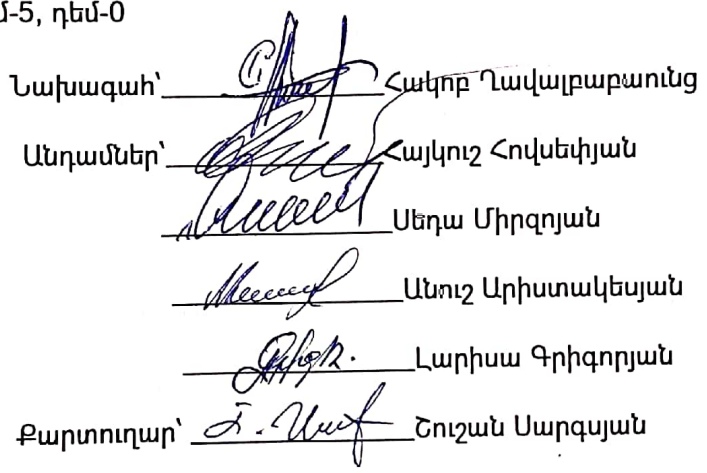 մ-5, դեմ-0
Նախագահ՝ Հակոբ Ղավալբաբաունց
Անդամներ՝ Հայկուշ Հովսեփյան
Սեդա Միրզոյան
Անուշ Արիստակեսյան
Լարիսա Գրիգորյան
Քարտուղար՝ Շուշան Սարգսյան